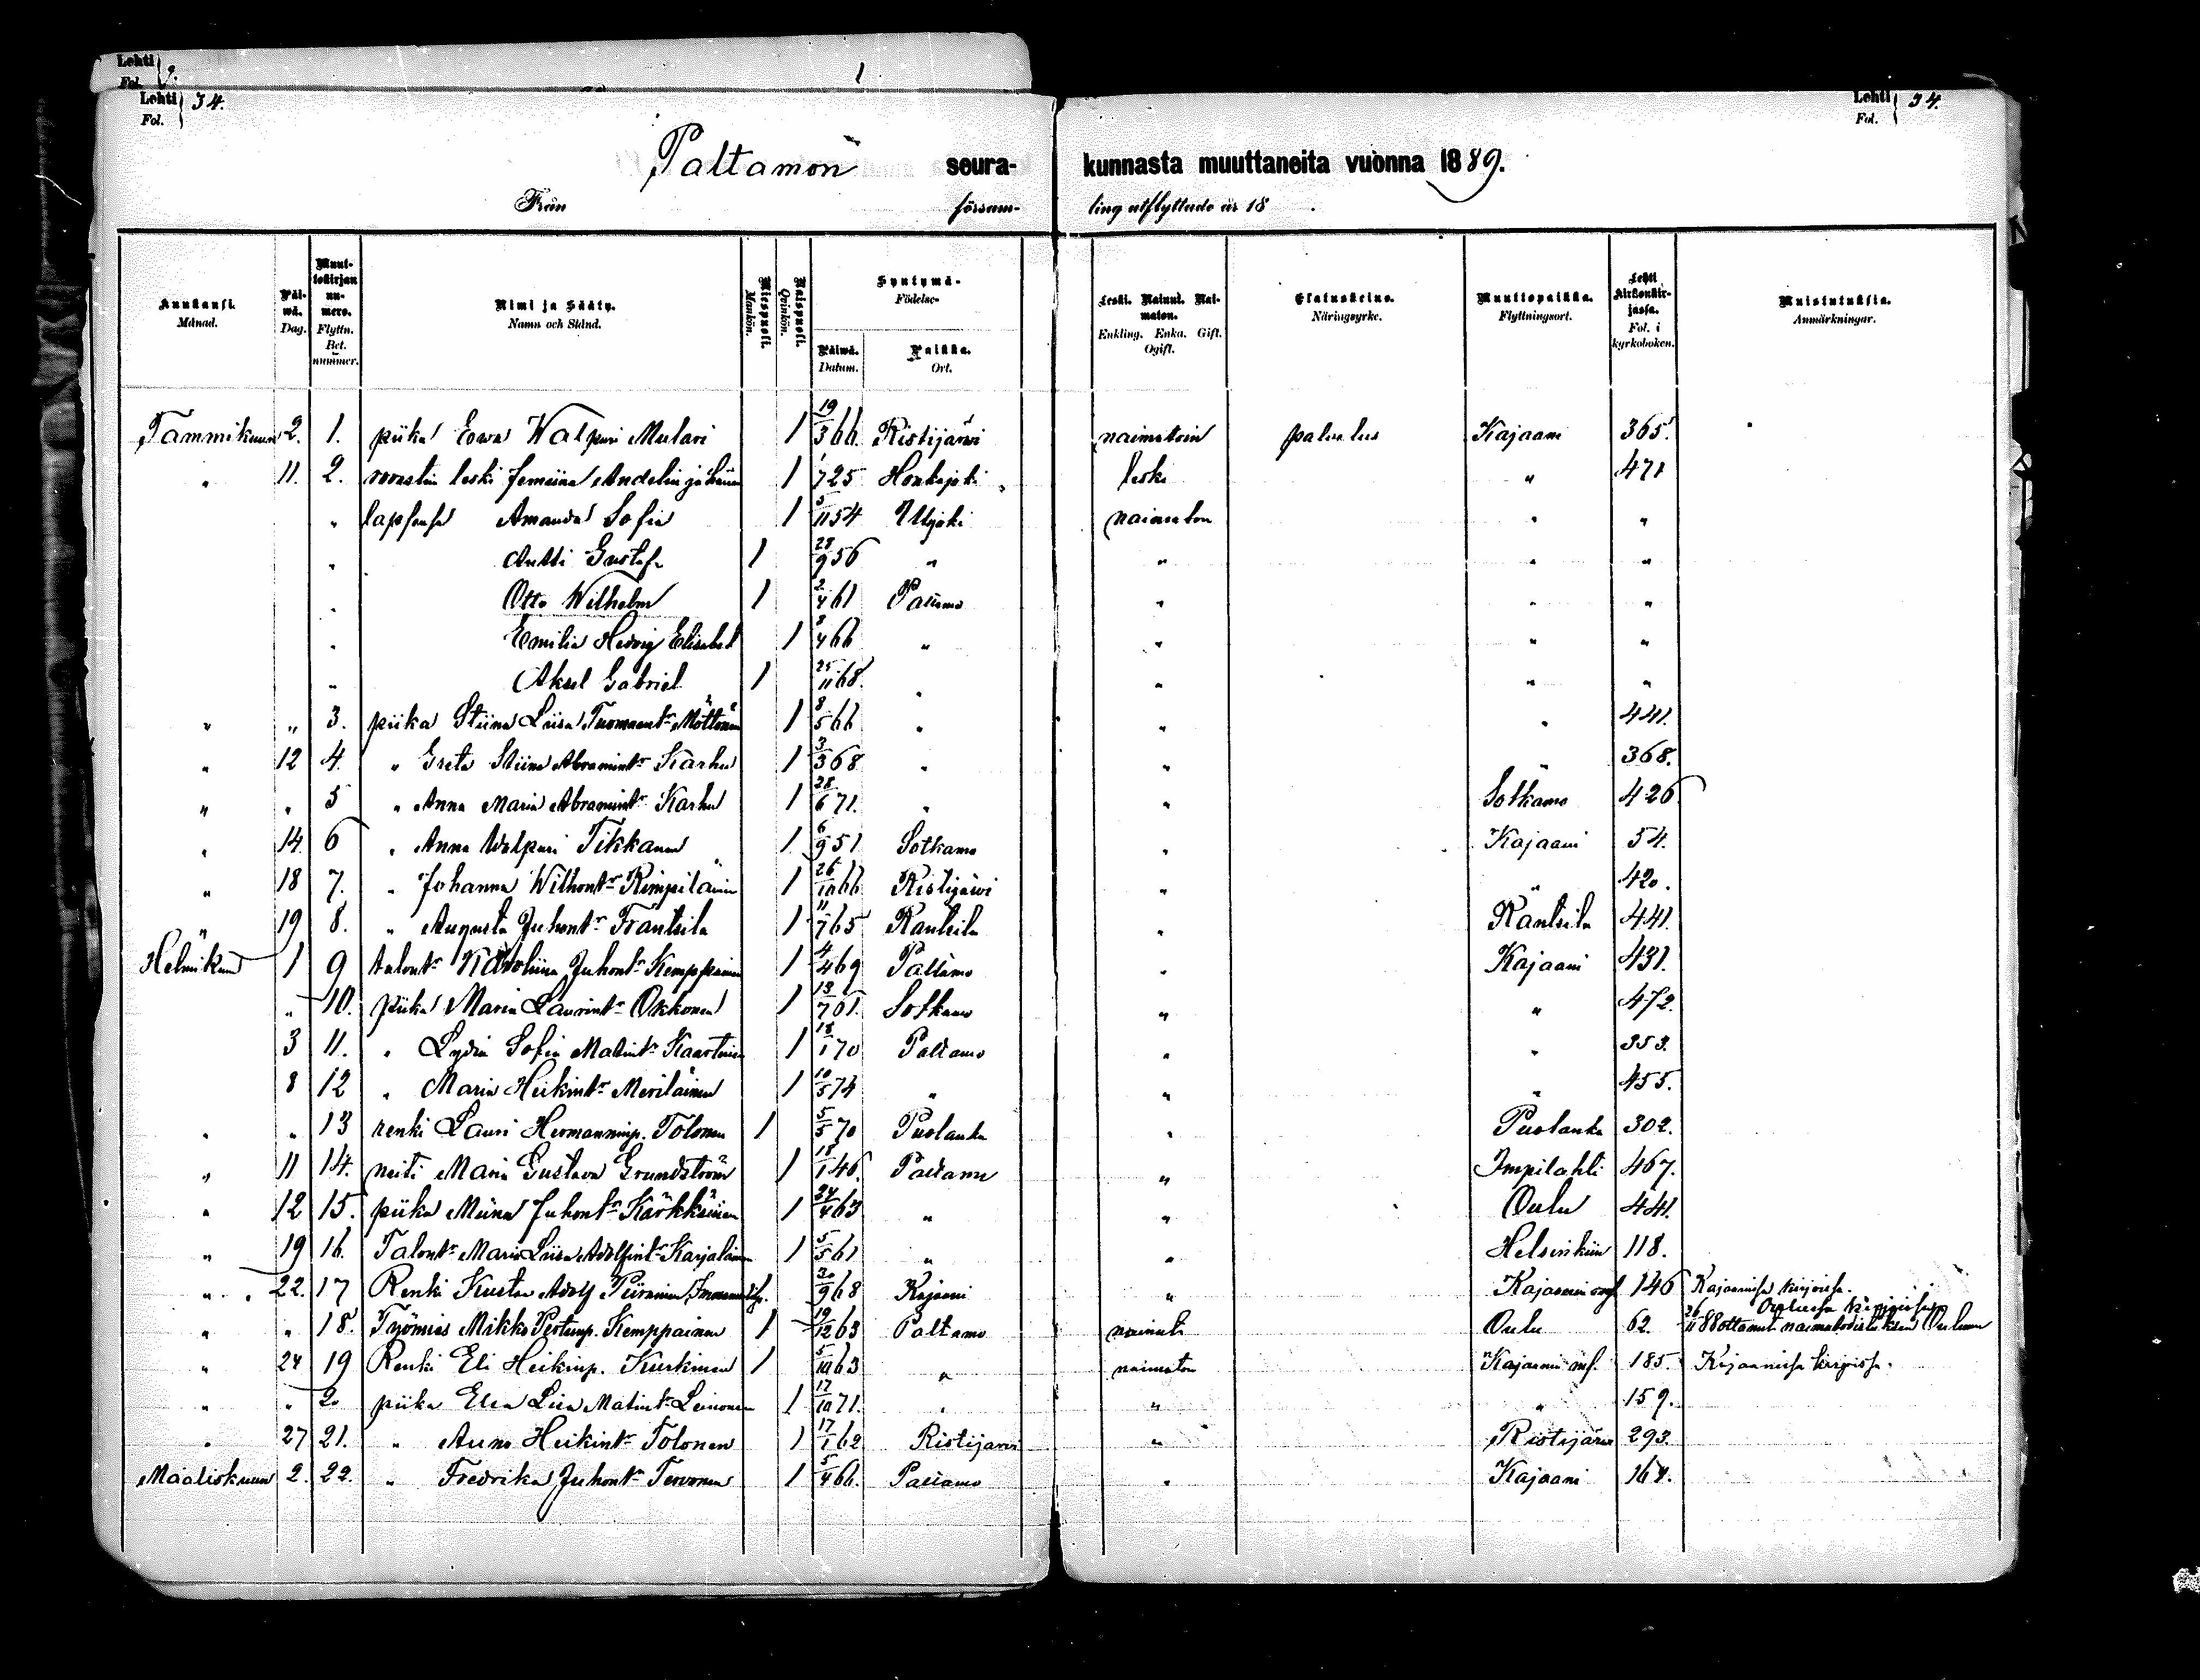 Lehti
Fol.
Lehti 34.
Fol.
Lehti 34.
Fol.
Paltamon seura- kunnasta muuttaneita vuonna 1889.
Från försam- ling utflyttade år 18 .
Kuukausi. Månad. Päi-wä. Dag. Muut-tokirjan nu-mero. Flyttn. Bet. nummer. Nimi ja Sääty. Namn och Stånd. Miespuoli. Mankön. Naispuoli. Qvinkön. Syntymä- Födelse- Päiwä. Datum. Paikka. Ort. Leski. Nainut. Nai-maton. Enkling. Enka. Gift. Ogift. Elatuskeino. Näringsyrke. Muuttopaikka. Flyttningsort. Lehti Kirkonkir-jassa. Fol. i kyrkoboken. Muistutuksia. Anmärkningar.
Tammikuun 2. 1. piika Eewa Walpuri Mulari 1 19/3 66. Ristijärvi naimatoin palvelus Kajaani 365.
" 11. 2. leski Andelin ja hänen 1 1/7 25 Honkajoki leski " 471
" lapsensa Amanda Sofia 1 5/11 54 Utsjoki naimaton " "
" Antti Gustaf 1 28/9 56 " " " "
" Otto Wilhelm 1 2/4 61 Paltamo " " "
" Emilia Hedvig Elisabet 1 8/4 66 " " " "
" Aksel Gabriel 1 25/11 68. " " " "
" " 3. piika Stiina Liisa Tuomaant:r Möttönen 1 8/5 66 " " " 441.
" 12 4. " Greta Stiina Abramint:r Karhu 1 3/3 68 " " " 368.
" " 5 " Anna Maria Abramint:r Karhu 1 28/6 71. " " Sotkamo 426
" 14. 6 " Anna Walpuri Tikkanen 1 6/9 51 Sotkamo " Kajaani 54.
" 18 7. " Johanna Wilhont:r Kimpiläinen 1 26/10 66 Ristijärvi " " 420.
" 19 8. " Augusta Juhont:r Fräntsilä 1 11/7 65 Rantsila " Rantsila 441.
Helmikuun 1 9 talont:r Karoliina Juhont:r Kemppainen 1 4/4 69 Paltamo " Kajaani 431.
" 10. piika Maria Laurint:r Okkonen 1 13/7 61. Sotkamo " " 472.
3 11. " Lydia Sofia Matint:r Kaartinen 1 18/1 70 Paltamo " " 353.
8 12 " Maria Heikint:r Meriläinen 1 10/5 74 " " " 455.
" " 13 renki Lauri Hermanninp. Tolonen 1 5/5 70 Puolanka " Puolanka 302.
" 11 14. neiti Maria Gustava Grundström 1 18/1 46. Paltamo " Impilahti 467.
" 12 15. piika Miina Juhont:r Kärkkäinen 1 24/4 63 " " Oulu 441.
" 19 16. Talont:r Maria Liisa Adolfint:r Karjalainen 1 5/5 61 " " Helsinkiin 118.
" " 22. 17 Renki Kusta Adolf Piirainen 1. 30/9 68 Kajaani " Kajaanin msf 146 Kajaanissa kirjoissa.
" " 18. Työmies Mikko Pertunp. Kemppainen 1 19/12 63 Paltamo nainut Oulu 62. Oulussa kirjoissa 26/11 88 ottanut naimatodistuksen Ouluun
" 24 19 Renki Eli Heikinp. Kurkinen 1 5/10 63 " naimaton Kajaanin msf. 185. Kajaanissa kirjoissa.
" " 20 piika Elsa Liisa Matint:r Leinonen 1 17/10 71. " " " 159.
" 27 21. " Anna Heikint:r Tolonen 1 17/1 62 Ristijärvi " Ristijärvi 293.
Maaliskuun 2. 22. " Fredrika Juhont:r Tervonen 1 5/4 66. Paltamo " Kajaani 164.